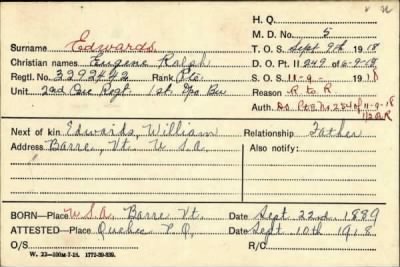 H. Q.
M. D. No. 5
Surname Edwards T. O. S. Sept 9th 1918
Christian names Eugene Ralph D. O. Pt. 11 249 of 6-9-18
Regtl. No. 3292442 Rank Pte. S. O. S. 11-9- 1918
Unit 2nd Que Regt. 1st Dpo. Bn Reason R to R
Auth. DO of 11-9-18
Next of kin Edwards, William Relationship Father
Address Barre, Vt. U S A Also notify:
BORN—Place U.S.A. Barre Vt. Date Sept. 22nd. 1889
ATTESTED—Place Quebec P.Q. Date Sept 10th 1918
O/S R/C
W. 22—100M 7-18. 1772-39-839.